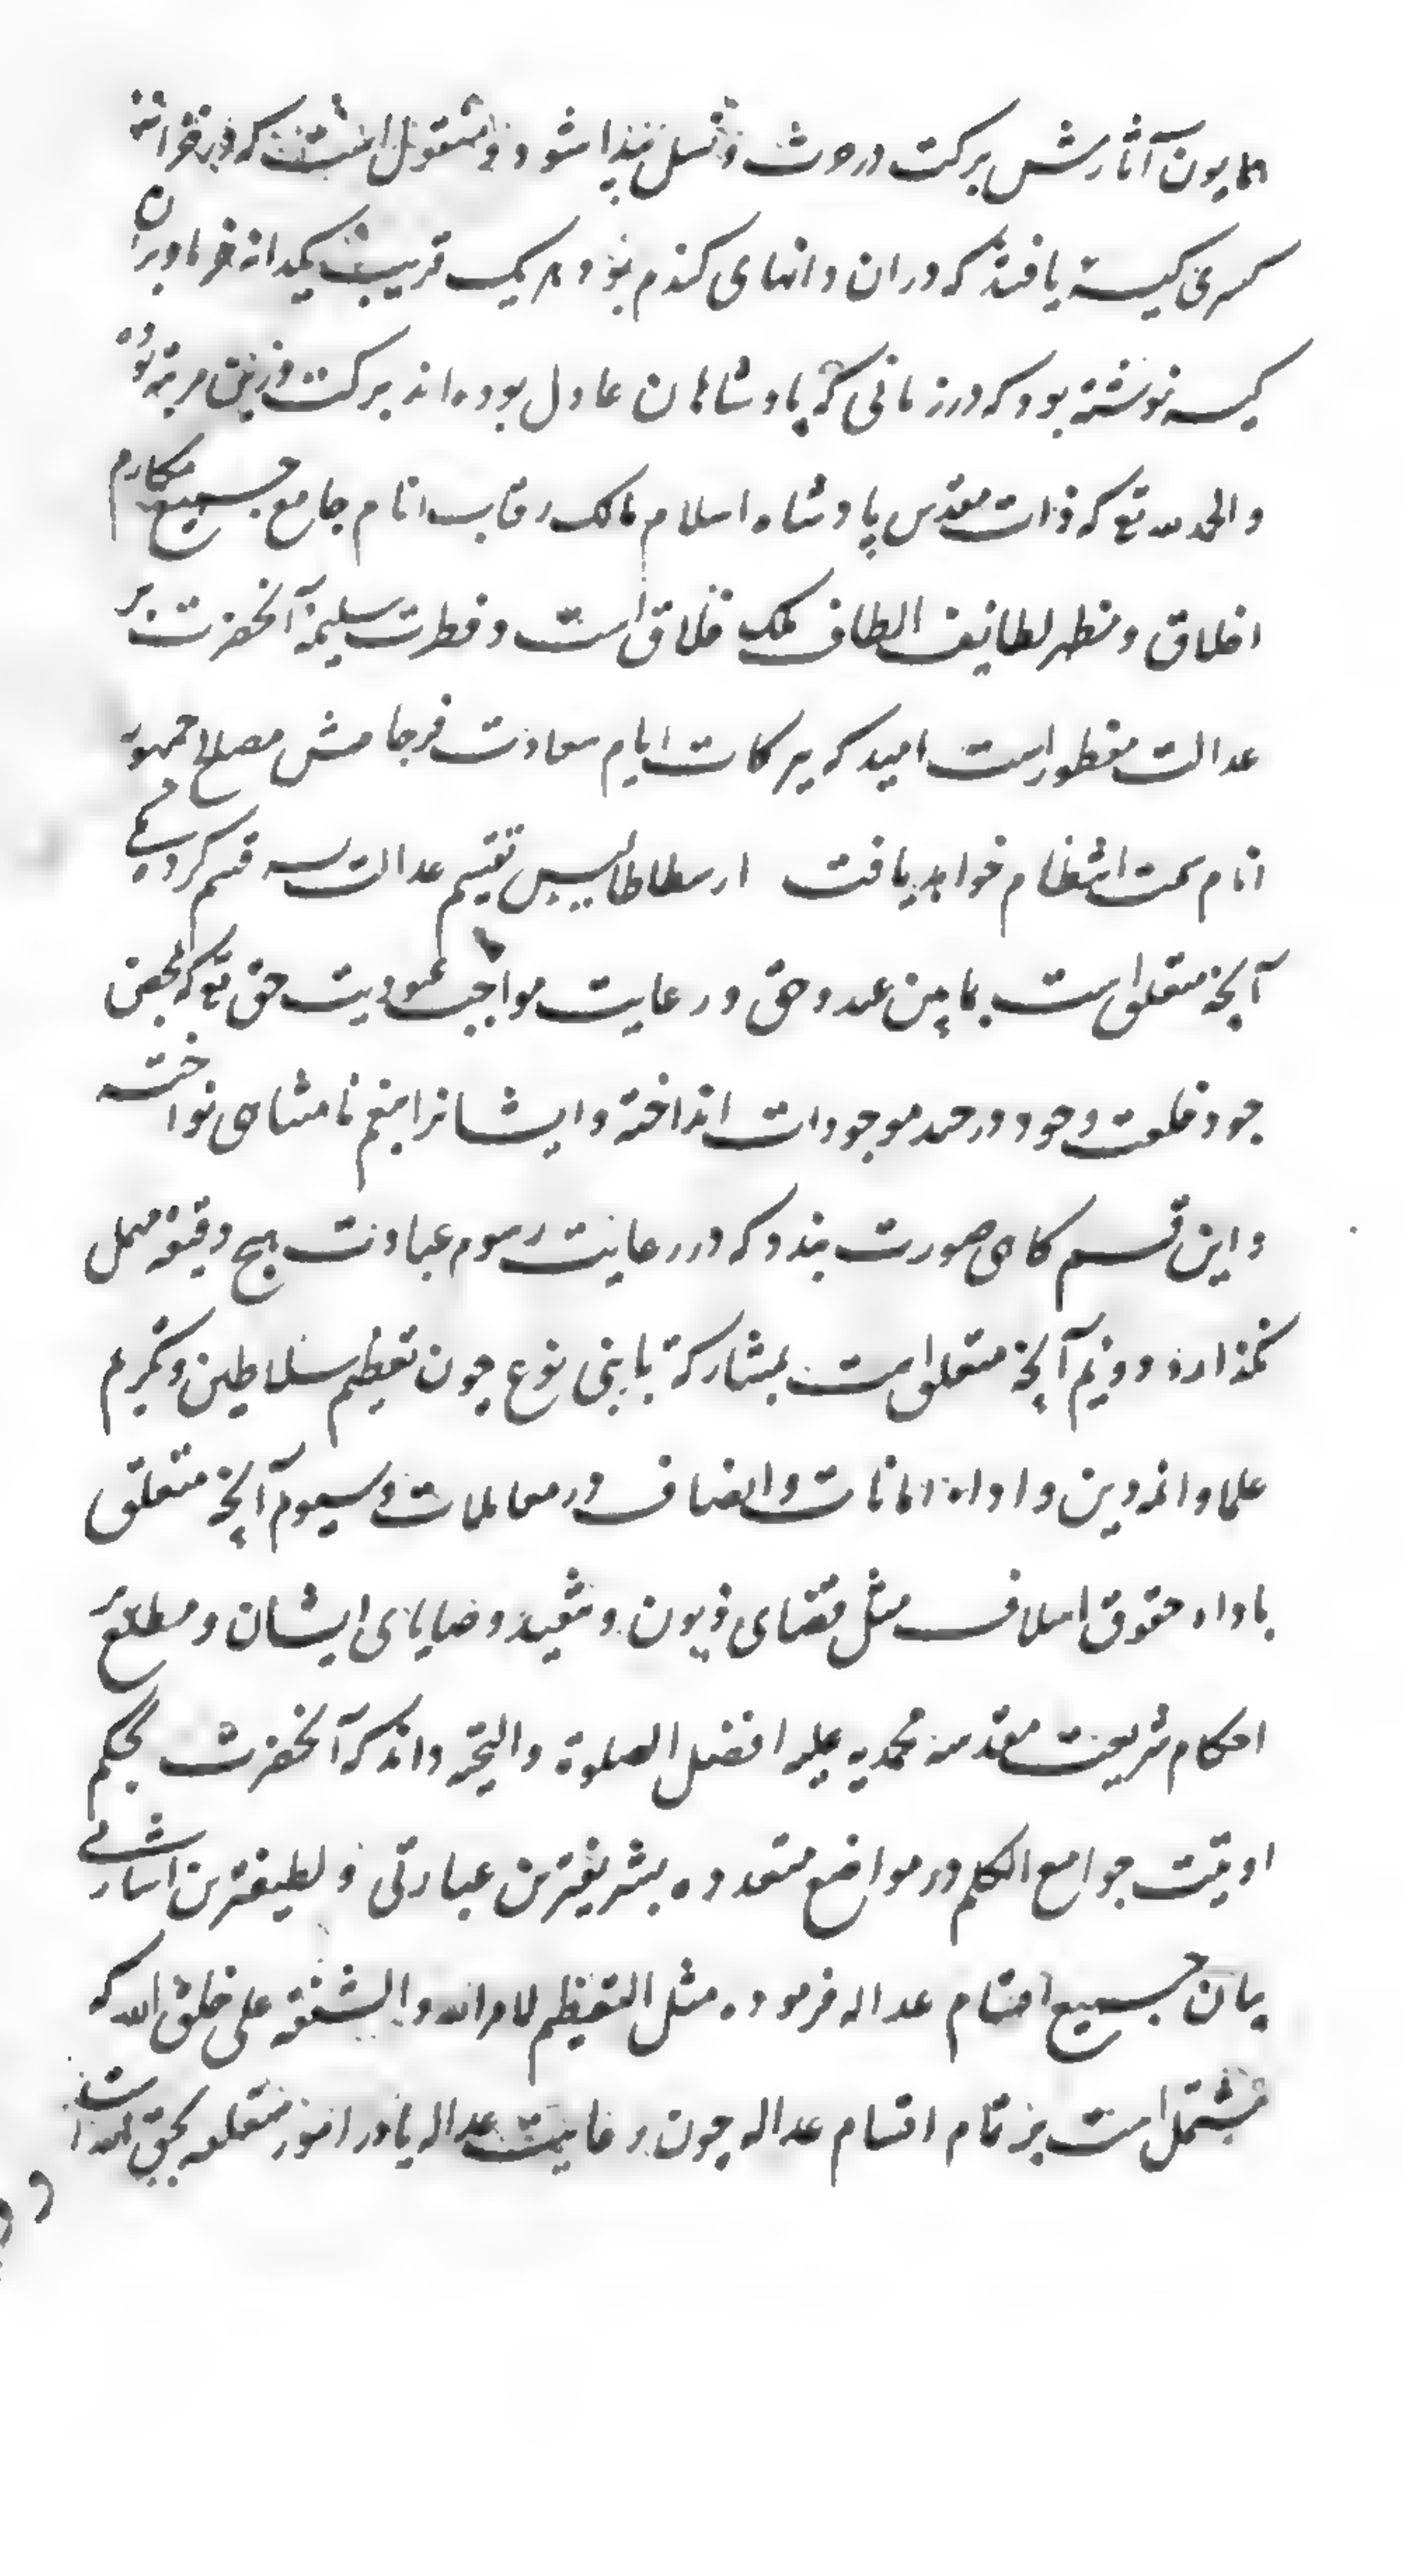 همایون آثارش برکت در حرث و نسل پیدا شود و منقول است که در خزانه
کسری کیسه یافتند که دران دانهای کندم بود هر یک قریب یکدانه خرما و بران
کیسه نوشته بود که در زمانی که پادشاهان عادل بوده اند برکت درین مرتبه بوده
والحمد لله تع که ذات مقدس پادشاه اسلام مالک رقاب انام جامع جمیع مکارم
اخلاق و مظهر لطایف الطاف ملک خلاق است و فطرت سلیمه آنحضرت بر
عدالت مفطور است امید که ببرکات ایام سعادت فرجامش مصالح جمهور
انام سمت انتظام خواهد یافت ارسطاطالیس تقسیم عدالت بسه قسم کرده یکی
آنچه متعلق است بمابین عبد و حق و رعایت مواجب عبودیت حق تع که بمحض
جود خلعت وجود در موجودات انداخته و ایشانرا بنعم نامتناهی نواخته
و این قسم کاهی صورت بندد که در رعایت رسوم عبادت هیچ دقیقه مهمل
نکذارد و دویم آنچه متعلق است بمشارکة با بنی نوع چون تعظیم سلاطین و تکریم
علما و ائمه دین و اداء امانات و انصاف در معاملات و سیوم آنچه متعلق
باداء حقوق اسلاف مثل قضای دیون و تنفیذ وصایای ایشان و مطلع بر
احکام شریعت مقدسه محمدیه علیه افضل الصلوة والتحیة داند که آنحضرت بحکم
اوتیت جوامع الکلم در مواضع متعدده بشریفترین عبارتی و لطیفترین اشارتی
بیان جمیع اقسام عداله فرموده مثل التعظیم لامر الله والشفقة علی خلق الله که
مشتمل است بر تمام اقسام عداله چون رعایت عداله یا در امور متعلقه بحق الله است